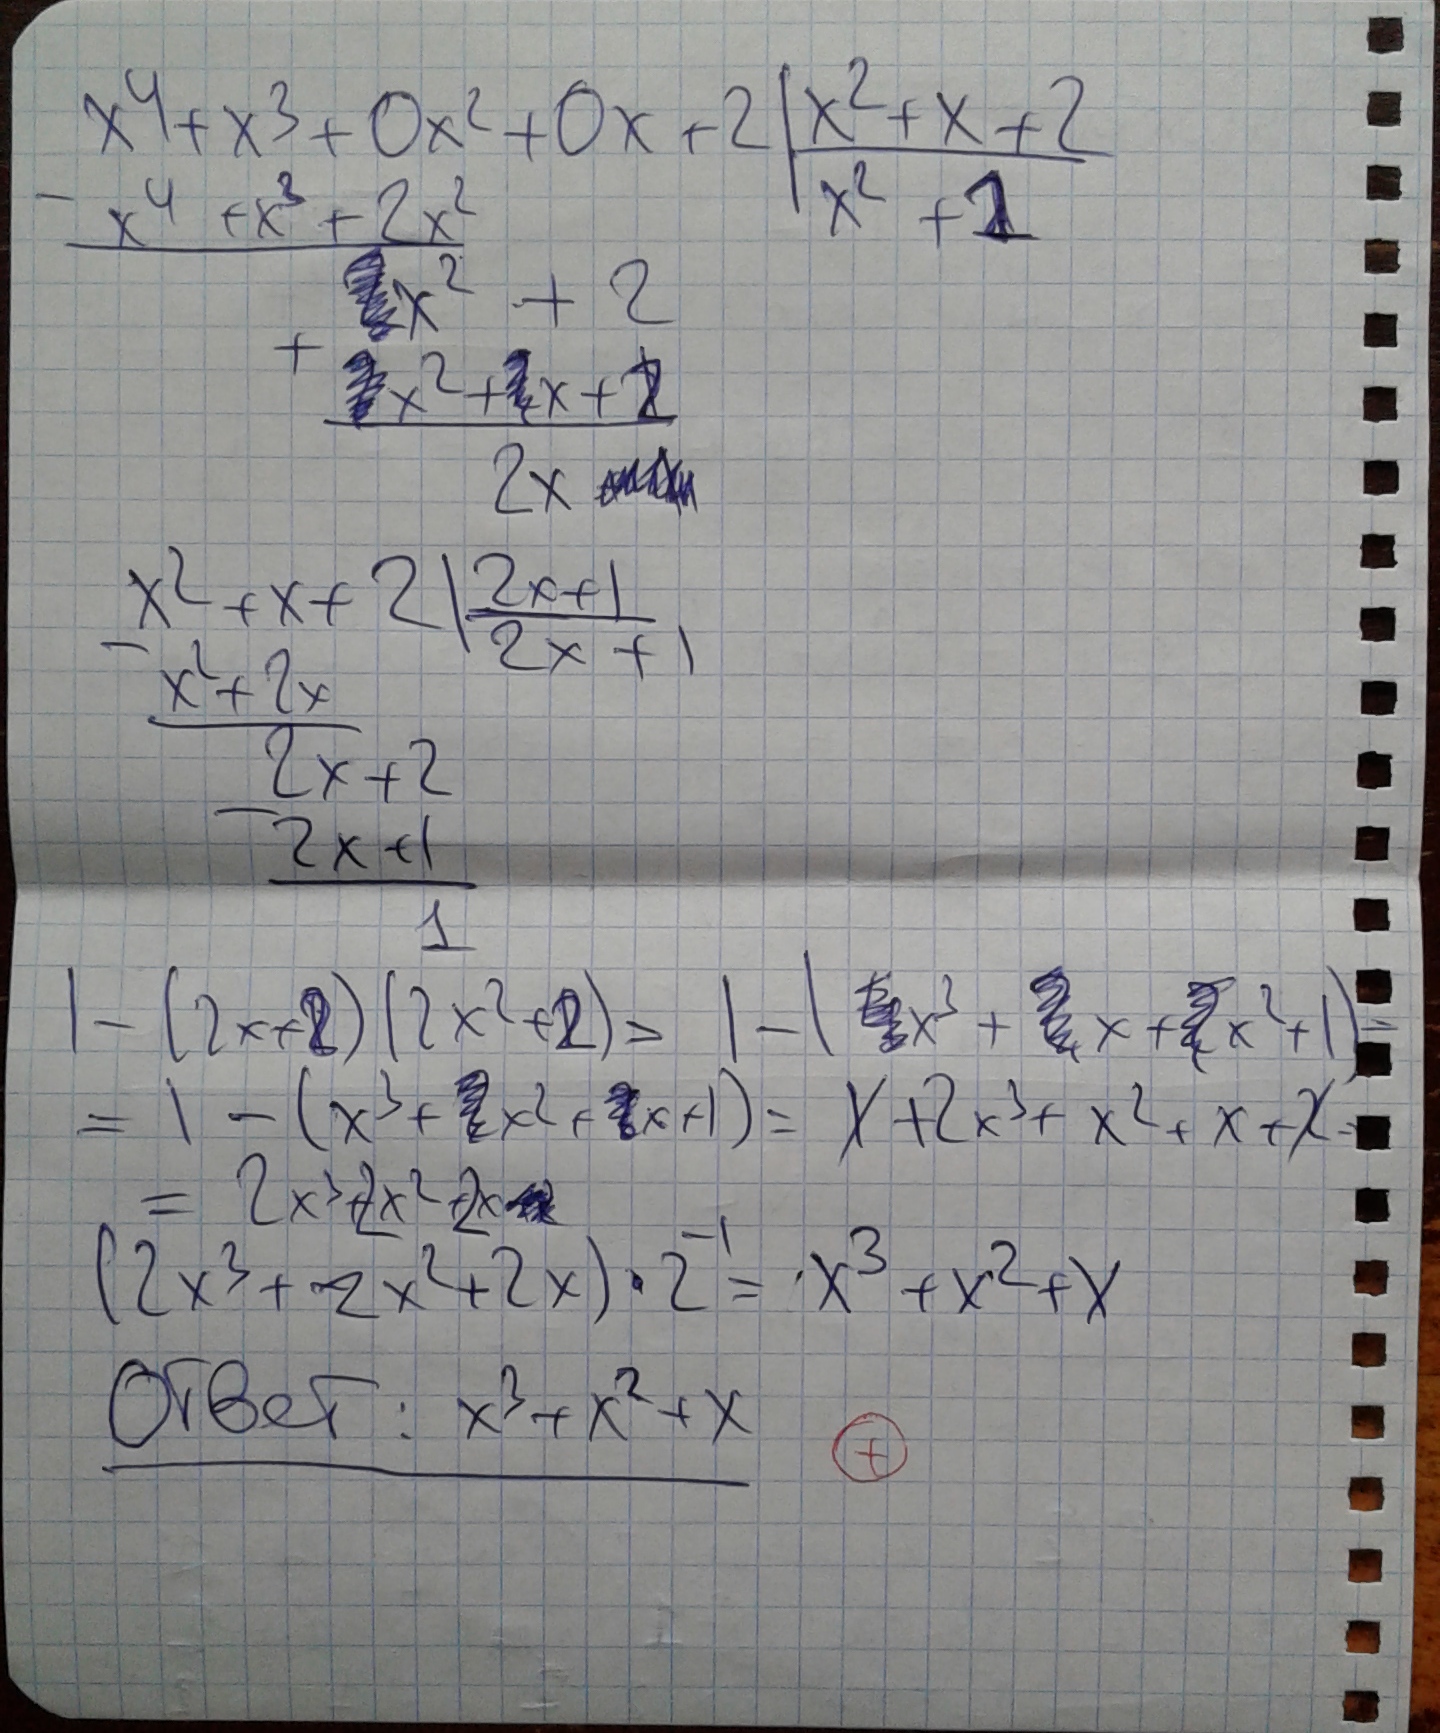 x⁴+x³+0x²+0x+2|x²+x+2
- x⁴ +x³+2x² x² +1
x² + 2
+ x²+x+2
2x
x²+x+2|2x+1
- x²+2x 2x+1
2x+2
- 2x+1
1
1-(2x+2)(2x²+2)= 1-(x³+x+x²+1)=
=1-(x³+x²+x+1)= 1+2x³+x²+x+2
= 2x³+2x²+2x
(2x³+2x²+2x)·2⁻¹= x³+x²+x
Ответ: x³+x²+x +